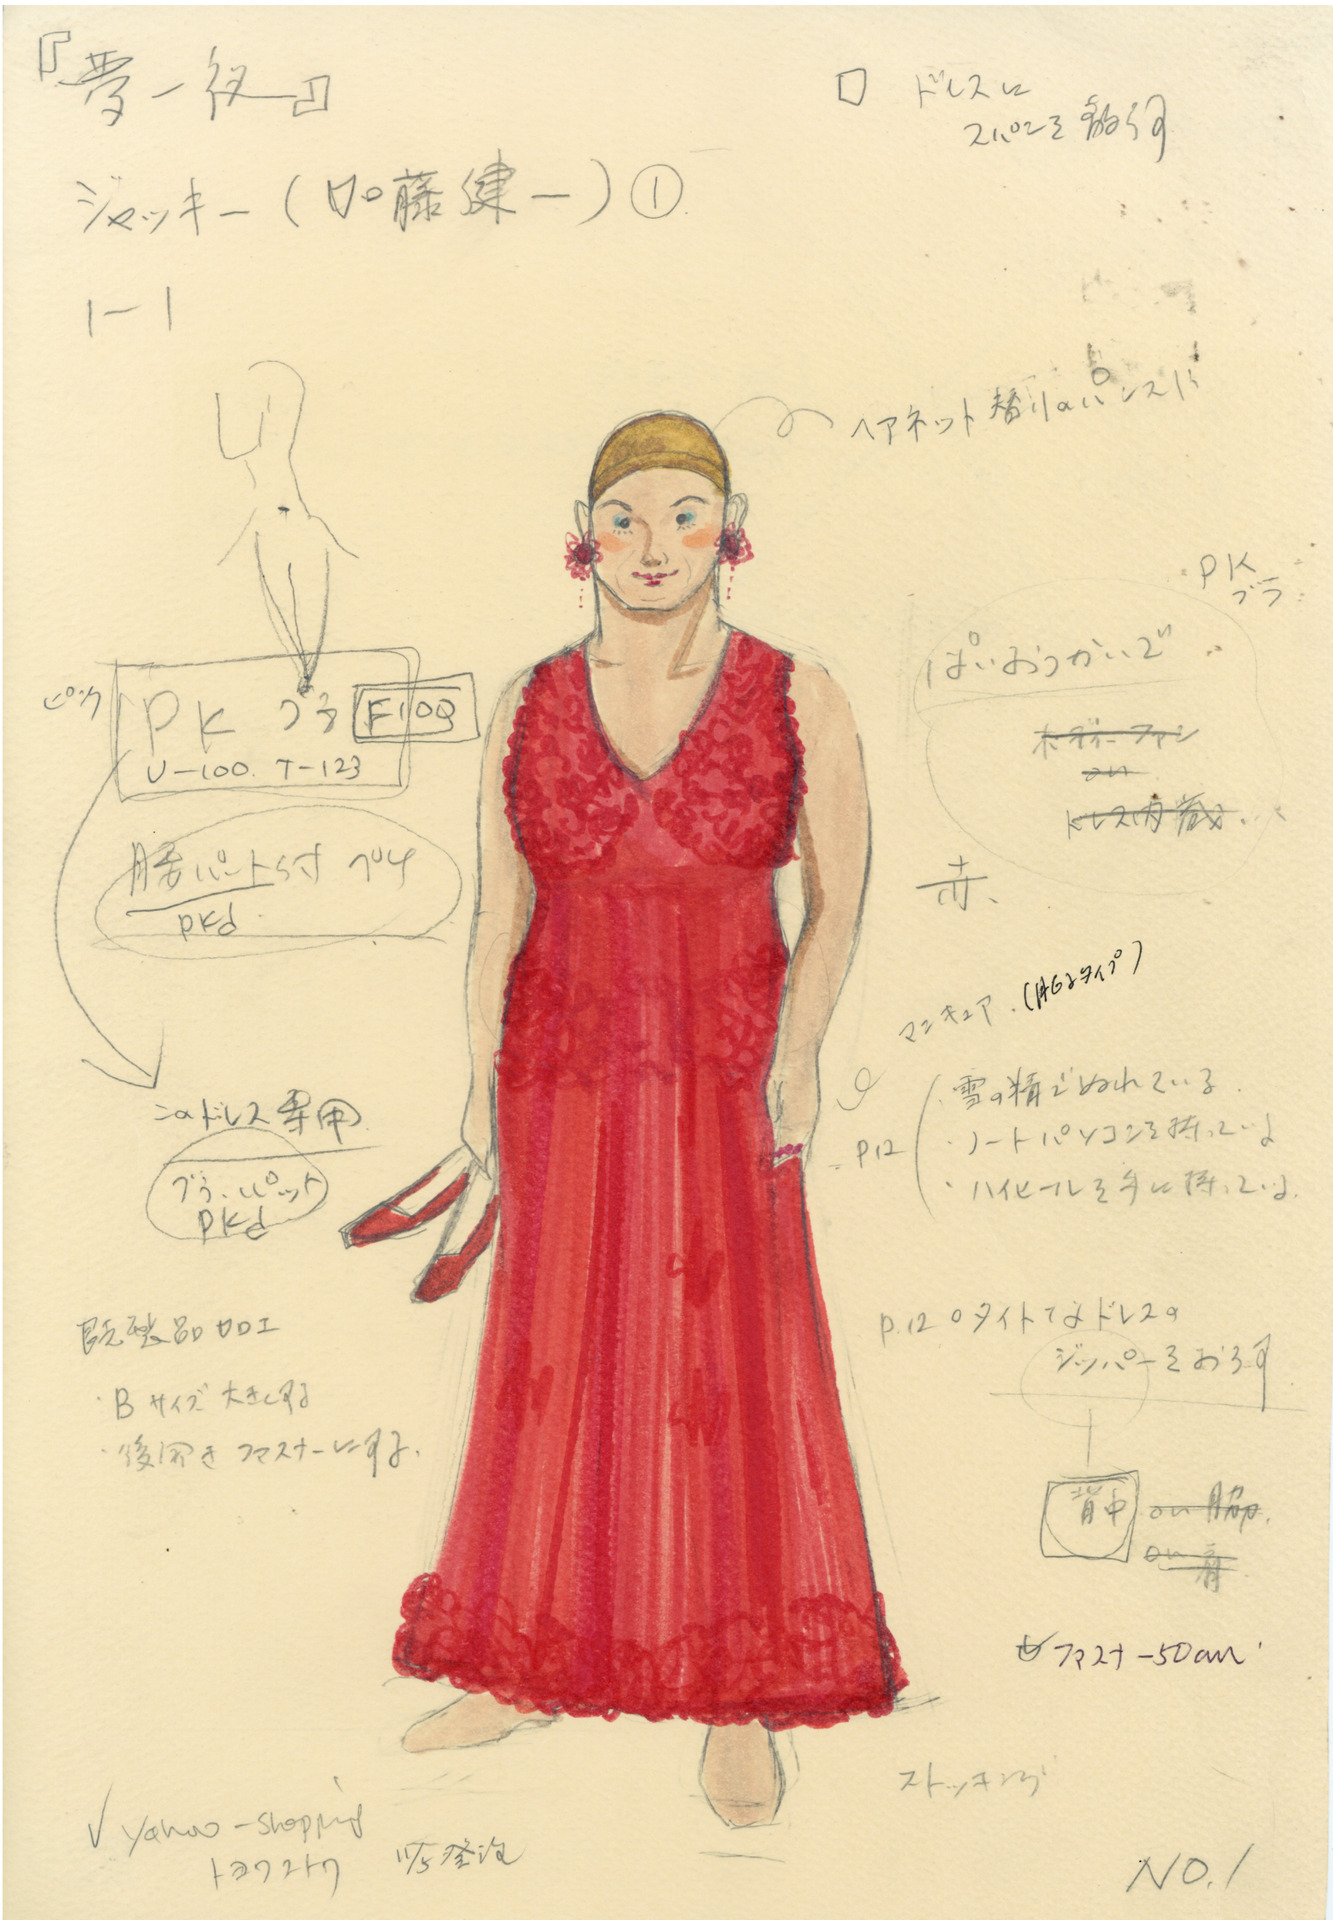 『夢一夜』
ジャッキー(加藤健一)①
1-1
□ ドレスに
スパンを散らす
ヘアネット替りのパンスト
PK
ブラ
ピンク
PK ブラ F100
U-100. T-123
腰パット付 ペチ
PKd
ぱいおつかいで
ボディーファン
or
ドレス内蔵
赤、
マンキュア.
このドレス専用
ブラ.パット
PKd
P12
・雪の精でぬれている
・ノートパソコンを持っている
・ハイヒールを手に持っている.
既製品加工
・Bサイズ大きくする
・後開きファスナーにする.
P.12 ○タイトなドレスの
ジッパーをおろす
背中 or 脇.
or 肩
ファスナー50cm
ストッキング
✓ yahoo-shopping
11/5 発注
NO.1